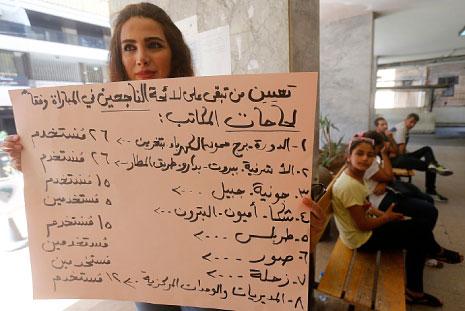 تعيين من تبقى على لائحة الناجحين في المباراة وفقاً
لحاجات المكاتب:
١- الدورة- برج حمود الكهرباء بنغزين -> ٢٦ مُستخدم
٢- الأشرفية- بيروت- بدارو طريق المطار -> ٢٦ مُستخدم
٣- جونية، جبيل ...> ١٥ مُستخدم
٤- شكا- أميون- البترون ...> ٥ مُستخدمين
٥- طرابلس ...> ١٥ مُستخدم
٦- صور ...> مُستخدمين
٧- زحلة ...> مستخدمين
٨- المديريات والوحدات المركزية -> ١٢ مُستخدم